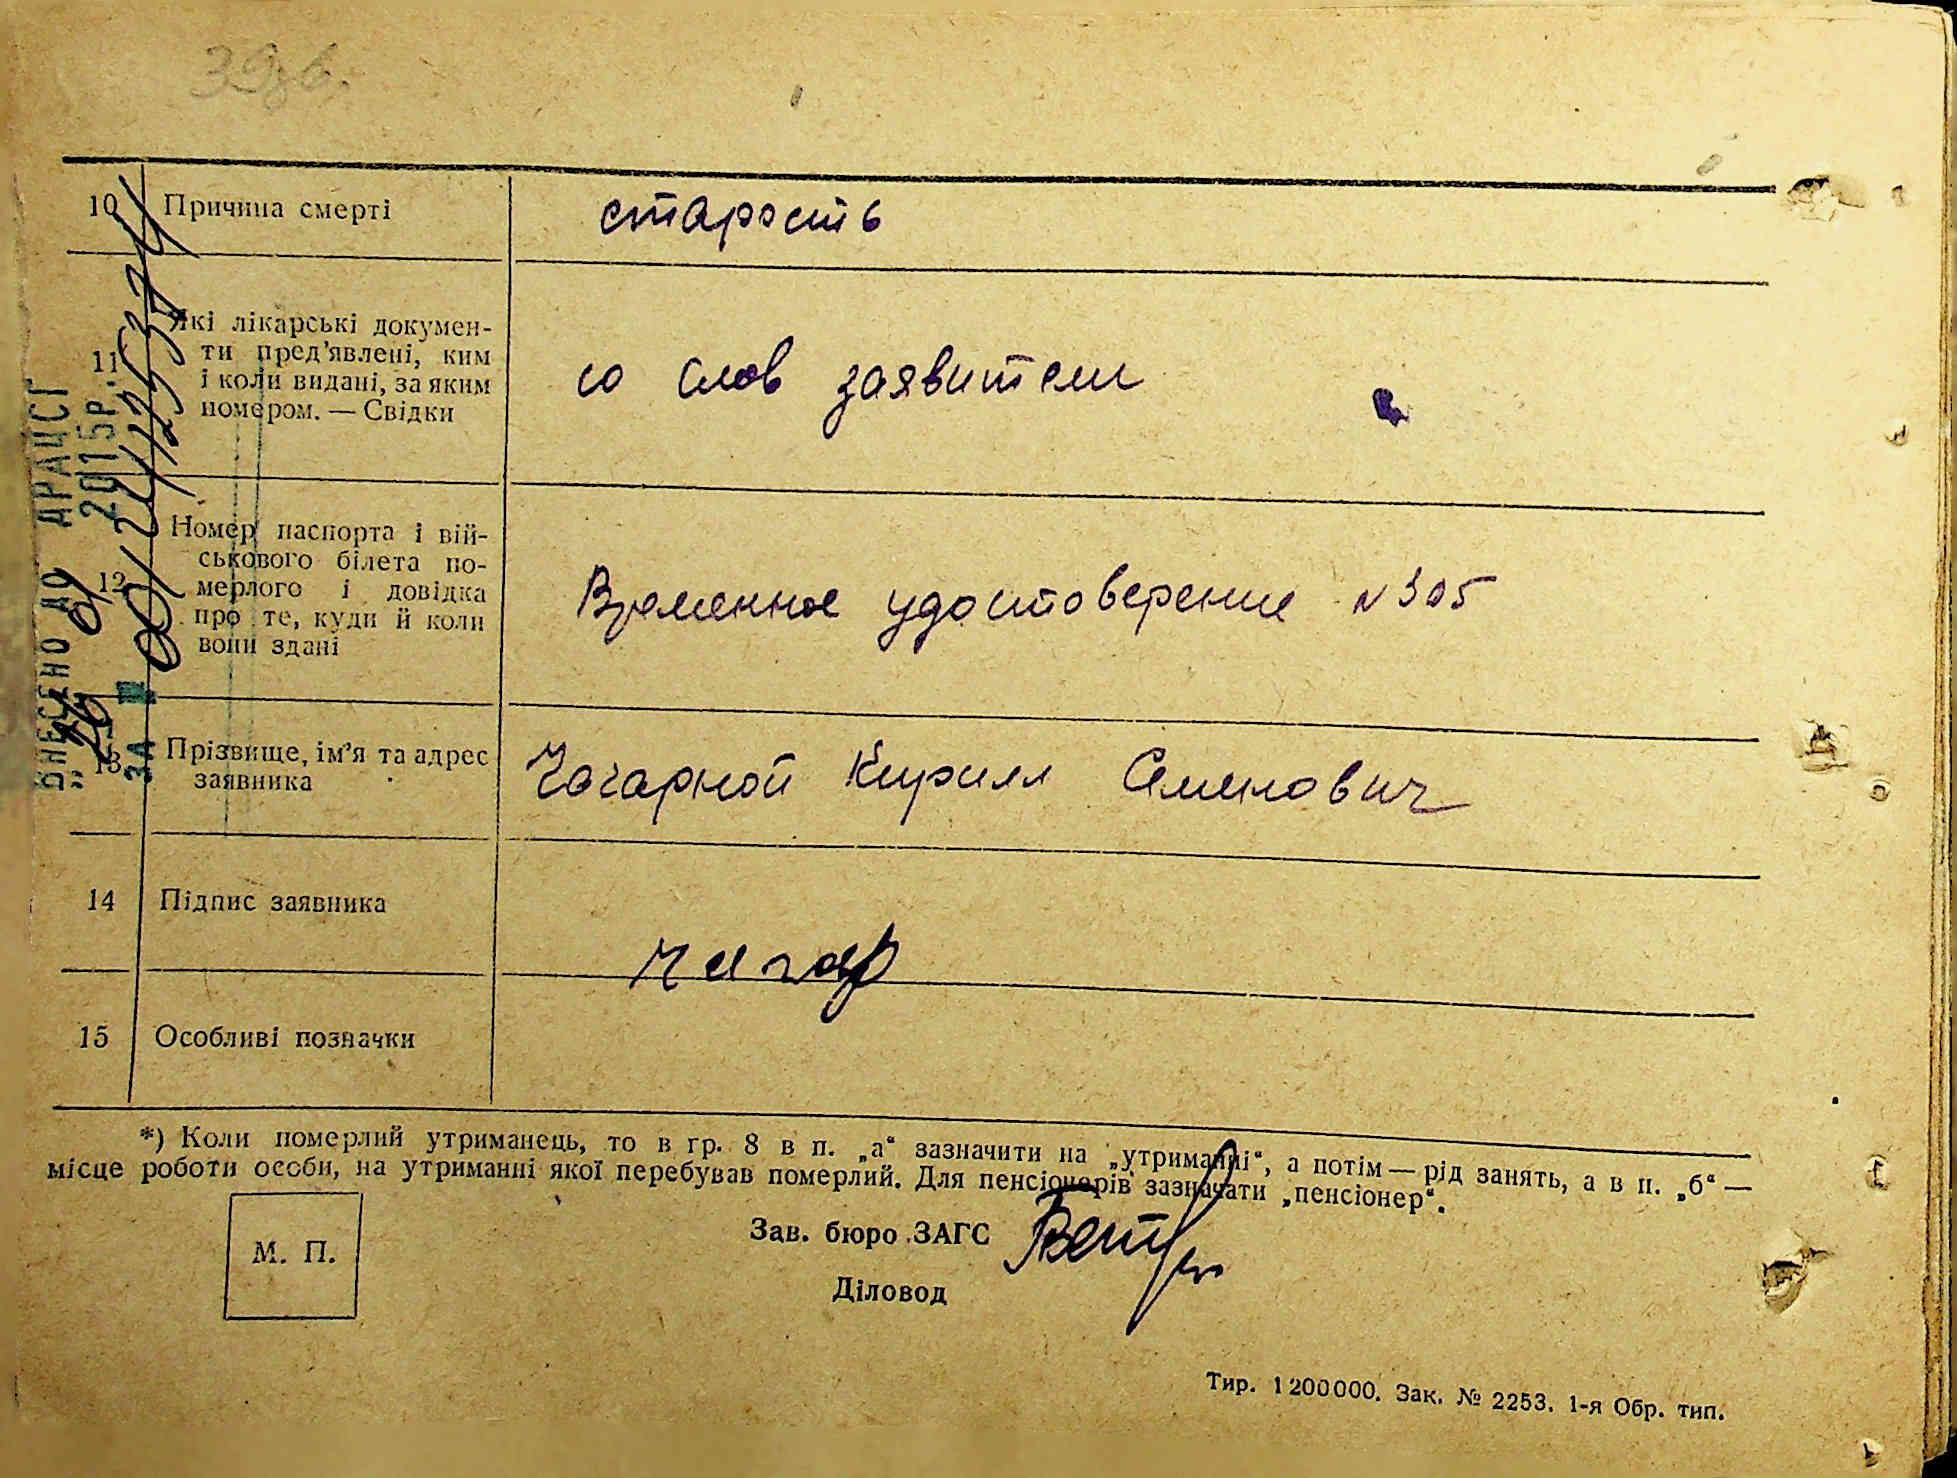 39зв.
10 Причина смерті старость
11 Які лікарські докумен-
ти пред’явлені, ким
і коли видані, за яким
номером. — Свідки
со слов заявителя
12 Номер паспорта і вій-
ськового білета по-
мерлого і довідка
про те, куди й коли
вони здані
Временное удостоверение N 305
13 Прізвище, ім’я та адрес
заявника
Чагарной Кирилл Семенович
14 Підпис заявника
Чагар
15 Особливі позначки
*) Коли померлий утриманець, то в гр. 8 в п. „а“ зазначити на „утриманні“, а потім — рід занять, а в п. „б“ —
місце роботи особи, на утриманні якої перебував померлий. Для пенсіонерів зазначати „пенсіонер“.
М. П.
Зав. бюро ЗАГС
Діловод
Тир. 1 200 000. Зак. № 2253. 1-я Обр. тип.
ВНЕСЕНО ДО ДРАЦСГ
2015р.
ЗА №